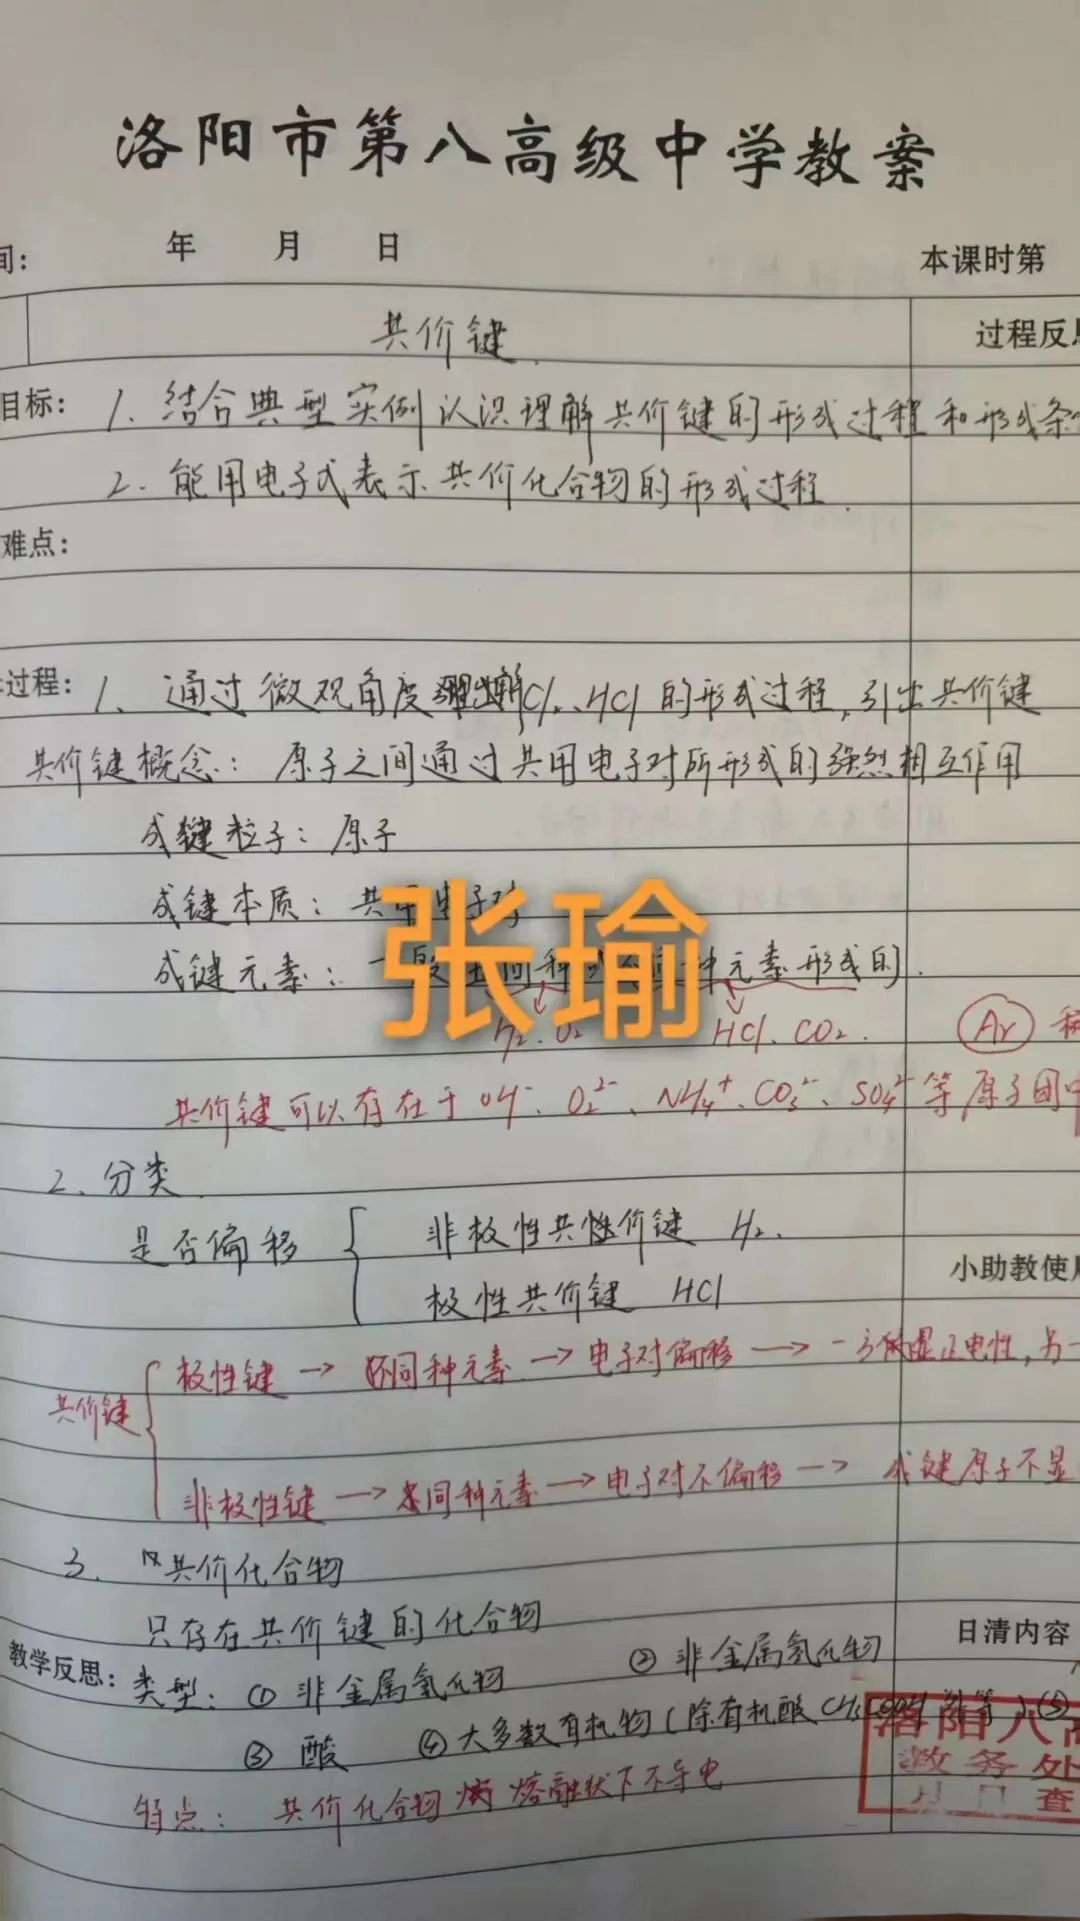 洛阳市第八高级中学教案
间: 年 月 日 本课时第
共价键 过程反思
目标: 1. 结合典型实例认识理解共价键的形成过程和形成条
2. 能用电子式表示共价化合物的形成过程.
难点:
过程: 1、通过微观角度 Cl₂、HCl 的形成过程,引出共价键
共价键概念: 原子之间通过共用电子对所形成的强烈相互作用
成键粒子: 原子
成键本质: 共用电子对
张瑜
成键元素: 一般 同种或 种元素形成的.
H₂、O₂ HCl、CO₂. Ar
共价键可以存在于 OH⁻、O₂²⁻、NH₄⁺、CO₃²⁻、SO₄²⁻ 等原子团中
2、分类
是否偏移 非极性共价键 H₂.
极性共价键 HCl 小助教使
共价键 极性键 → 不同种元素 → 电子对偏移 → 一方 显正电性,另一
非极性键 → 同种元素 → 电子对不偏移 → 成键原子不显
3. 共价化合物
只存在共价键的化合物
教学反思: 类型: ① 非金属氢化物 ② 非金属氧化物 日清内容
③ 酸 ④ 大多数有机物(除有机酸 CH₃COOH 盐等) ⑤
特点: 共价化合物 熔融状下不导电
洛阳八高
教务处
月 日 查